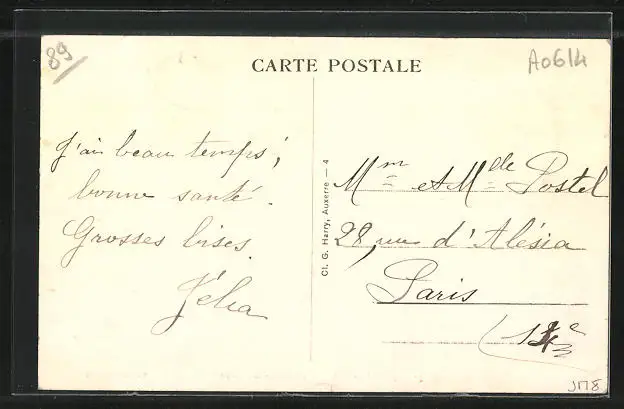 89
CARTE POSTALE
A0614
J'ai beau temps,
bonne santé.
Grosses bises.
Cl. G. Harry, Auxerre — 4
Mme et Mdelle Postel
28, rue d'Alésia
Paris
(14e
JM8